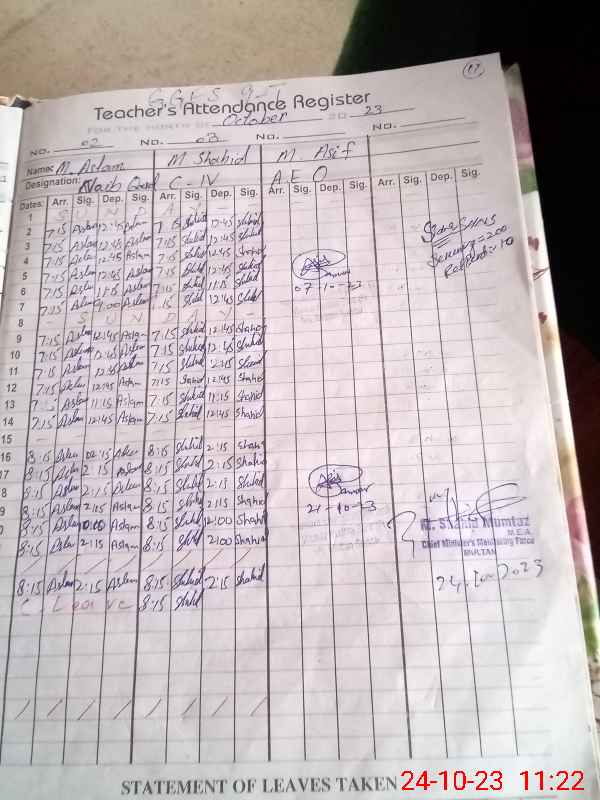 17
Teacher's Attendance Register
FOR THE MONTH OF October 20 23
NO. 02 NO. 03 NO. NO.
Name: M. Aslam M Shahid M. Asif
Designation: Naib Qasd C-IV A.E.O
Dates: Arr. Sig. Dep. Sig. Arr. Sig. Dep. Sig. Arr. Sig. Dep. Sig. Arr. Sig. Dep. Sig.
1 S U N D A Y
2 7:15 Aslam 12:45 Aslam 7:15 Shahid 12:45 Shahid
3 7:15 Aslam 12:45 Aslam 7:15 Shahid 12:45 Shahid
4 7:15 Aslam 12:45 Aslam 7:15 Shahid 12:45 Shahid
5 7:15 Aslam 12:45 Aslam 7:15 Shahid 12:45 Shahid
6 7:15 Aslam 11:15 Aslam 7:15 Shahid 11:15 Shahid
7 7:15 Aslam 9:00 Aslam 7:15 Shahid 12:45 Shahid
07-10-23
8 - S U N D A Y -
9 7:15 Aslam 12:45 Aslam 7:15 Shahid 12:45 Shahid
10 7:15 Aslam 12:45 Aslam 7:15 Shahid 12:45 Shahid
11 7:15 Aslam 12:45 Aslam 7:15 Shahid 12:15 Shahid
12 7:15 Aslam 12:45 Aslam 7:15 Shahid 12:45 Shahid
13 7:15 Aslam 11:15 Aslam 7:15 Shahid 11:15 Shahid
14 7:15 Aslam 12:45 Aslam 7:15 Shahid 12:45 Shahid
15
16 8:15 Aslam 02:15 Aslam 8:15 Shahid 2:15 Shahid
17 8:15 Aslam 2:15 Aslam 8:15 Shahid 2:15 Shahid
8 8:15 Aslam 2:15 Aslam 8:15 Shahid 2:15 Shahid
9 8:15 Aslam 2:15 Aslam 8:15 Shahid 2:15 Shahid
8:15 Aslam Aslam 8:15 Shahid 12:00 Shahid
8:15 Aslam 2:15 Aslam 8:15 Shahid 2:00 Shahid
21-10-23
8:15 Aslam 2:15 Aslam 8:15 Shahid 2:15 Shahid
C Leave 8:15 Shahid
M. Shahid Mumtaz
M.E.A.
Chief Minister's Monitoring Force
MULTAN
24.10.2023
STATEMENT OF LEAVES TAKEN
24-10-23 11:22